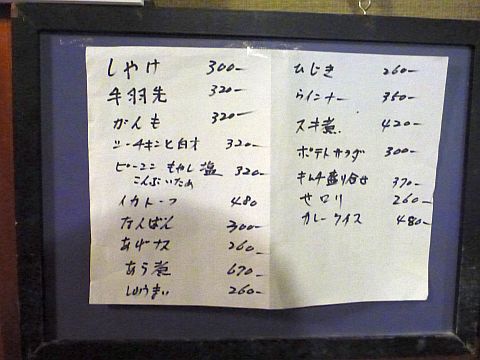 しゃけ 300-
手羽先 320-
がんも 320-
シーチキンと白才 320-
ピーマン もやし 塩 320-
こんぶいため
イカトーフ 480
なんばん 300-
あげナス 260-
あら煮 670-
しゅうまい 260-
ひじき 260-
ウインナー 350-
スキ煮 420-
ポテトサラダ 300-
キムチ盛り合せ 370-
セロリ 260-
カレーライス 480-